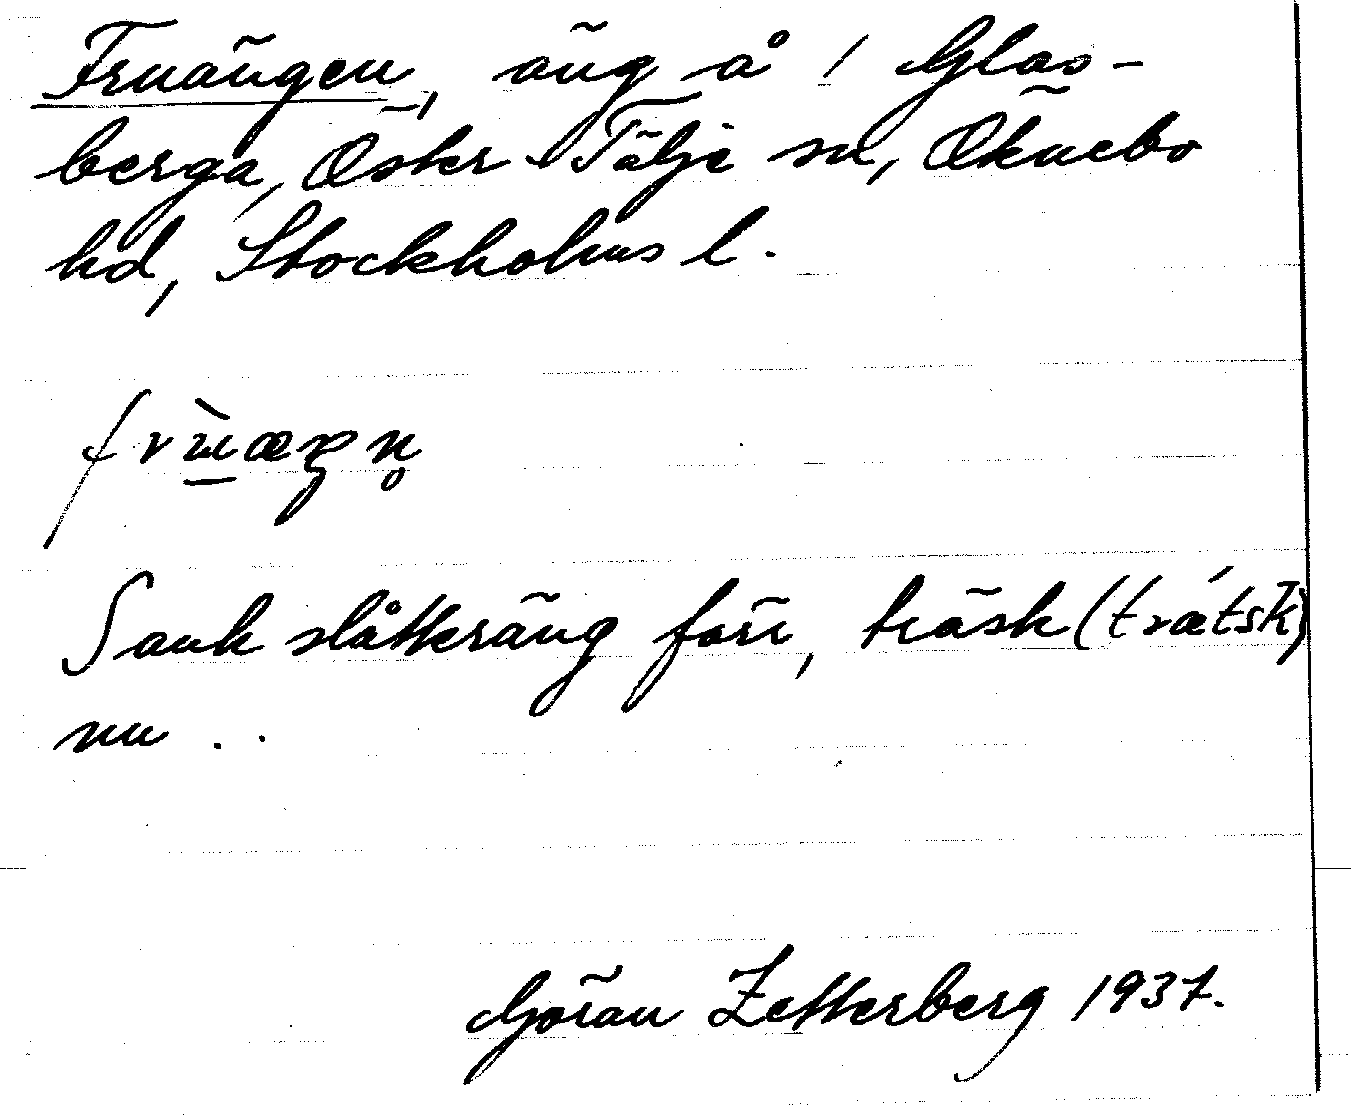 Fruängen, äng å 1 Glas-
berga, Öster-Tälje sn, Öknebo
hd, Stockholms l.
frùæŋn̥
Sank slåtteräng förr, träsk (trætsk)
nu ..
Göran Zetterberg 1937.